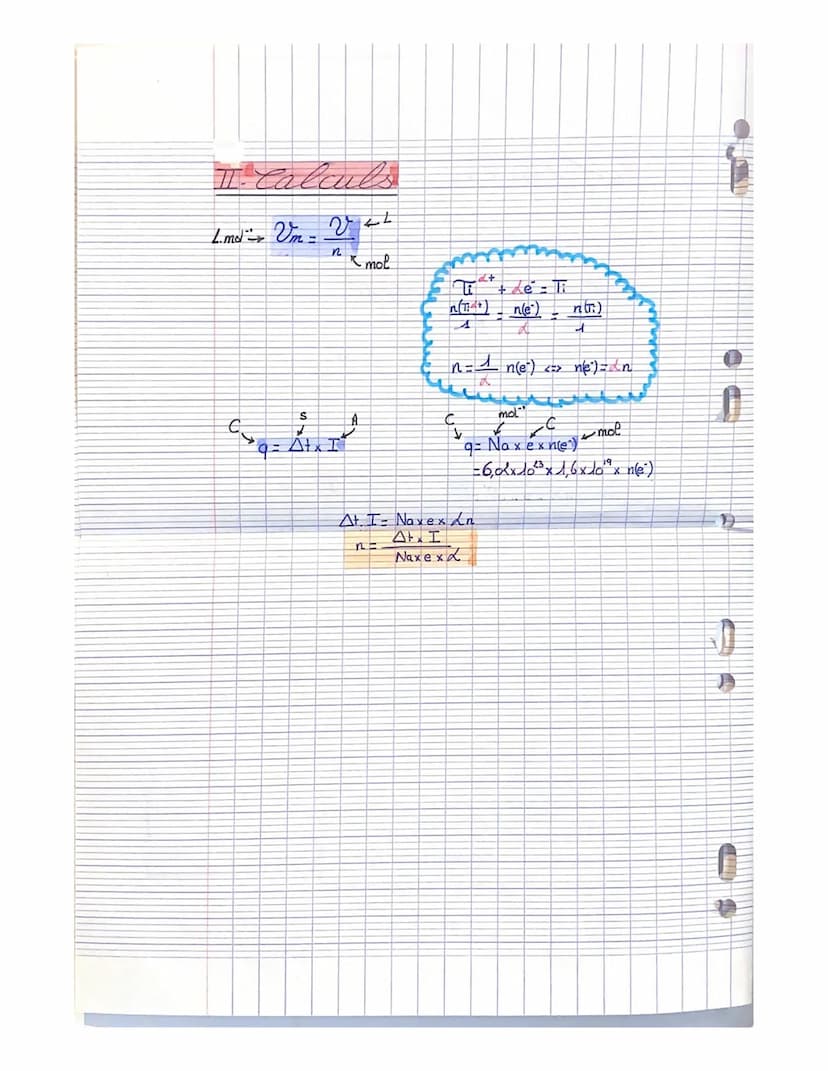 II - Calculs
L.mol⁻¹ → Vm = V / n ← L
↖ mol
Ti²⁺ + 2e⁻ = Ti
n(Ti²⁺)/1 = n(e⁻)/2 = n(Ti)/1
n = 1/2 n(e⁻) <=> n(e⁻) = 2n
C s A
q = Δt x I
C mol⁻¹ C mol
q = Na x e x n(e⁻)
= 6,02x10²³ x 1,6x10⁻¹⁹ x n(e⁻)
Δt. I = Na x e x 2n
n = Δt x I / Na x e x 2